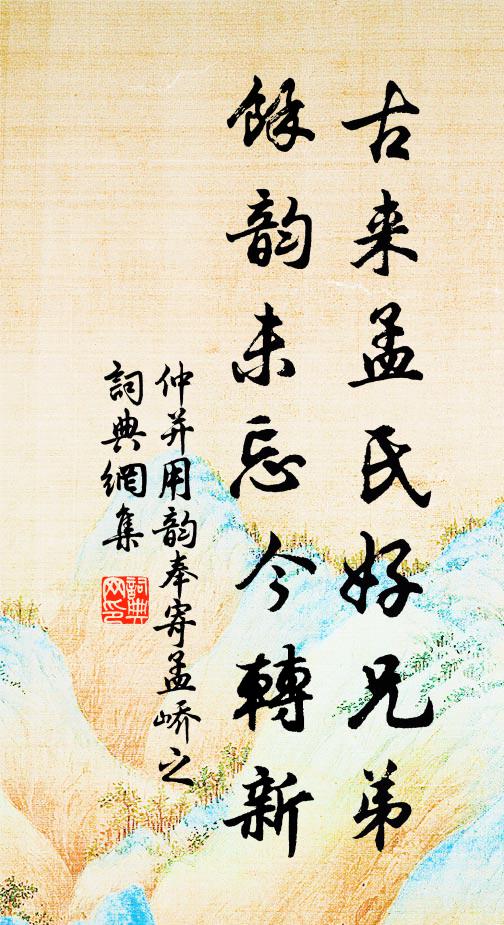 古来孟氏好兄弟
餘韵未忘今轉新
仲并用韵奉寄孟峤之
詞典網集
詞典網印